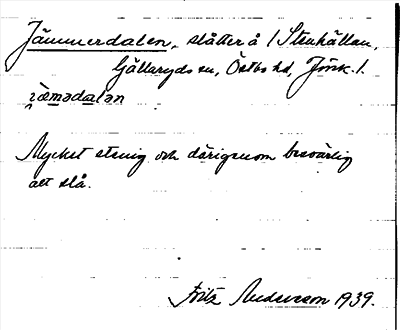 Jämmerdalen, slåtter å /Stenhällan,
Gällaryds sn, Östbo hd, Jönk. l.
jæmədalən
Mycket stenig och därigenom besvärlig
att slå.
Fritz Andersson 1939.